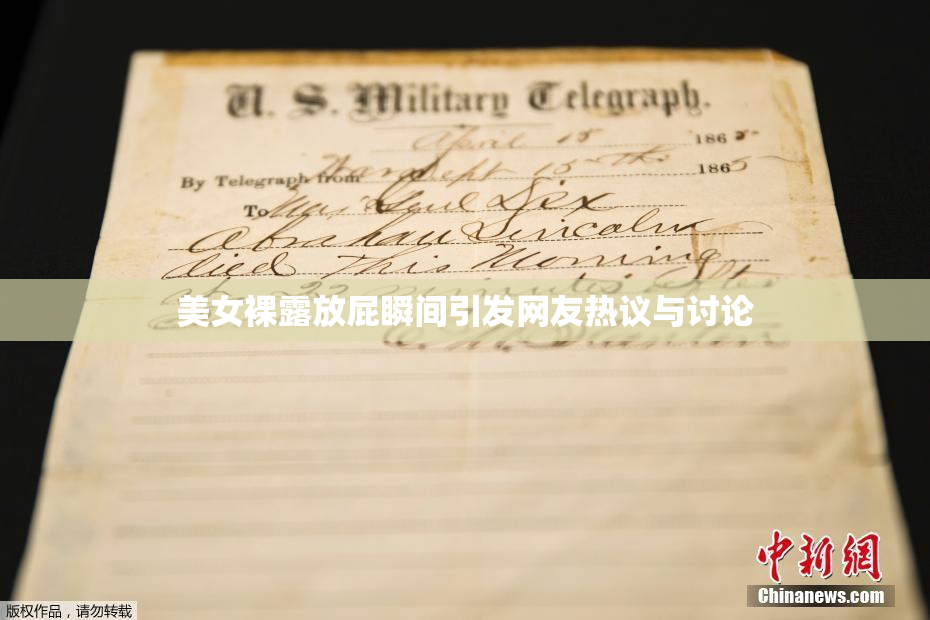 U. S. Military Telegraph.
April 15 1865
By Telegraph from War Dept 15th 1865
To Maj Genl Dix
Abraham Lincoln
died This Morning
at 22 minutes after
美女裸露放屁瞬间引发网友热议与讨论
E. M. Stanton
中新网
Chinanews.com
版权作品，请勿转载